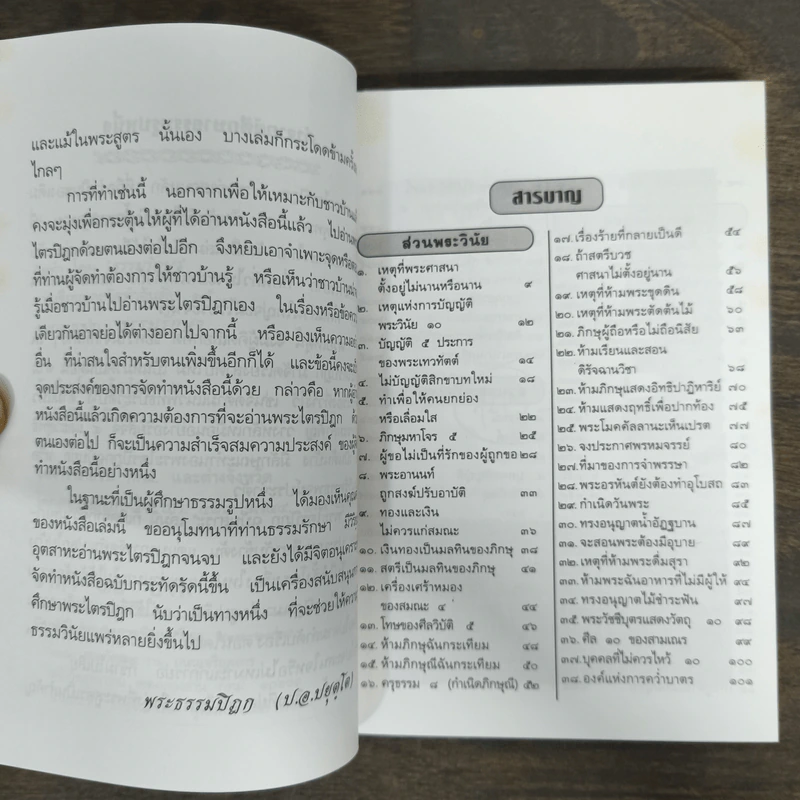 และแม้ในพระสูตร นั้นเอง บางเล่มก็กระโดดข้าม
ไกลๆ
การที่ทำเช่นนี้ นอกจากเพื่อให้เหมาะกับชาวบ้าน
คงจะมุ่งเพื่อกระตุ้นให้ผู้ที่ได้อ่านหนังสือนี้แล้ว ไปอ่าน
ไตรปิฎกด้วยตนเองต่อไปอีก จึงหยิบเอาจำเพาะจุด
ที่ท่านผู้จัดทำต้องการให้ชาวบ้านรู้ หรือเห็นว่าชาวบ้าน
รู้เมื่อชาวบ้านไปอ่านพระไตรปิฎกเอง ในเรื่องหรือข้อความ
เดียวกันอาจย่อได้ต่างออกไปจากนี้ หรือมองเห็นความ
อื่น ที่น่าสนใจสำหรับตนเพิ่มขึ้นอีกก็ได้ และข้อนี้คง
จุดประสงค์ของการจัดทำหนังสือนี้ด้วย กล่าวคือ หาก
หนังสือนี้แล้วเกิดความต้องการที่จะอ่านพระไตรปิฎก
ตนเองต่อไป ก็จะเป็นความสำเร็จสมความประสงค์ ของ
ทำหนังสือนี้อย่างหนึ่ง
ในฐานะที่เป็นผู้ศึกษาธรรมรูปหนึ่ง ได้มองเห็น
ของหนังสือเล่มนี้ ขออนุโมทนาที่ท่านธรรมรักษา
อุตสาหะอ่านพระไตรปิฎกจนจบ และยังได้มีจิต
จัดทำหนังสือฉบับกระทัดรัดนี้ขึ้น เป็นเครื่องสนับสนุน
ศึกษาพระไตรปิฎก นับว่าเป็นทางหนึ่ง ที่จะช่วยให้
ธรรมวินัยแพร่หลายยิ่งขึ้นไป
พระธรรมปิฎก (ป.อ.ปยุตฺโต)
สารบาญ
ส่วนพระวินัย
๑. เหตุที่พระศาสนา
ตั้งอยู่ไม่นานหรือนาน ๙
๒. เหตุแห่งการบัญญัติ
พระวินัย ๑๐ ๑๒
๓. บัญญัติ ๕ ประการ
ของพระเทวทัตต์ ๑๔
๔. ไม่บัญญัติสิกขาบทใหม่ ๑๘
๕. ทำเพื่อให้คนยกย่อง
หรือเลื่อมใส ๒๒
๖. ภิกษุมหาโจร ๕ ๒๕
๗. ผู้ขอไม่เป็นที่รักของผู้ถูกขอ ๒๘
๘. พระอานนท์
ถูกสงฆ์ปรับอาบัติ ๓๓
๙. ทองและเงิน
ไม่ควรแก่สมณะ ๓๖
๑๐. เงินทองเป็นมลทินของภิกษุ ๓๘
๑๑. สตรีเป็นมลทินของภิกษุ ๔๑
๑๒. เครื่องเศร้าหมอง
ของสมณะ ๔ ๔๔
๑๓. โทษของศีลวิบัติ ๕ ๔๕
๑๔. ห้ามภิกษุฉันกระเทียม ๔๘
๑๕. ห้ามภิกษุณีฉันกระเทียม ๕๐
๑๖. ครุธรรม ๘ (กำเนิดภิกษุณี) ๕๒
๑๗. เรื่องร้ายที่กลายเป็นดี ๕๔
๑๘. ถ้าสตรีบวช
ศาสนาไม่ตั้งอยู่นาน ๕๖
๑๙. เหตุที่ห้ามพระขุดดิน ๕๘
๒๐. เหตุที่ห้ามพระตัดต้นไม้ ๖๐
๒๑. ภิกษุผู้ถือหรือไม่ถือนิสัย ๖๓
๒๒. ห้ามเรียนและสอน
ดิรัจฉานวิชา ๖๘
๒๓. ห้ามภิกษุแสดงอิทธิปาฏิหาริย์ ๗๐
๒๔. ห้ามแสดงฤทธิ์เพื่อปากท้อง ๗๕
๒๕. พระโมคคัลลานะเห็นเปรต ๗๗
๒๖. จงประกาศพรหมจรรย์ ๘๐
๒๗. ที่มาของการจำพรรษา ๘๒
๒๘. พระอรหันต์ยังต้องทำอุโบสถ
๒๙. กำเนิดวันพระ ๘๕
๓๐. ทรงอนุญาตน้ำอัฏฐบาน ๘๗
๓๑. จะสอนพระต้องมีอุบาย ๘๙
๓๒. เหตุที่ห้ามพระดื่มสุรา ๙๒
๓๓. ห้ามพระฉันอาหารที่ไม่มีผู้ให้ ๙๔
๓๔. ทรงอนุญาตไม้ชำระฟัน ๙๗
๓๕. พระวัชชีบุตรแสดงวัตถุ ๑๐ ๙๘
๓๖. ศีล ๑๐ ของสามเณร ๙๙
๓๗. บุคคลที่ไม่ควรไหว้ ๑๐ ๑๐๐
๓๘. องค์แห่งการคว่ำบาตร ๑๐๑